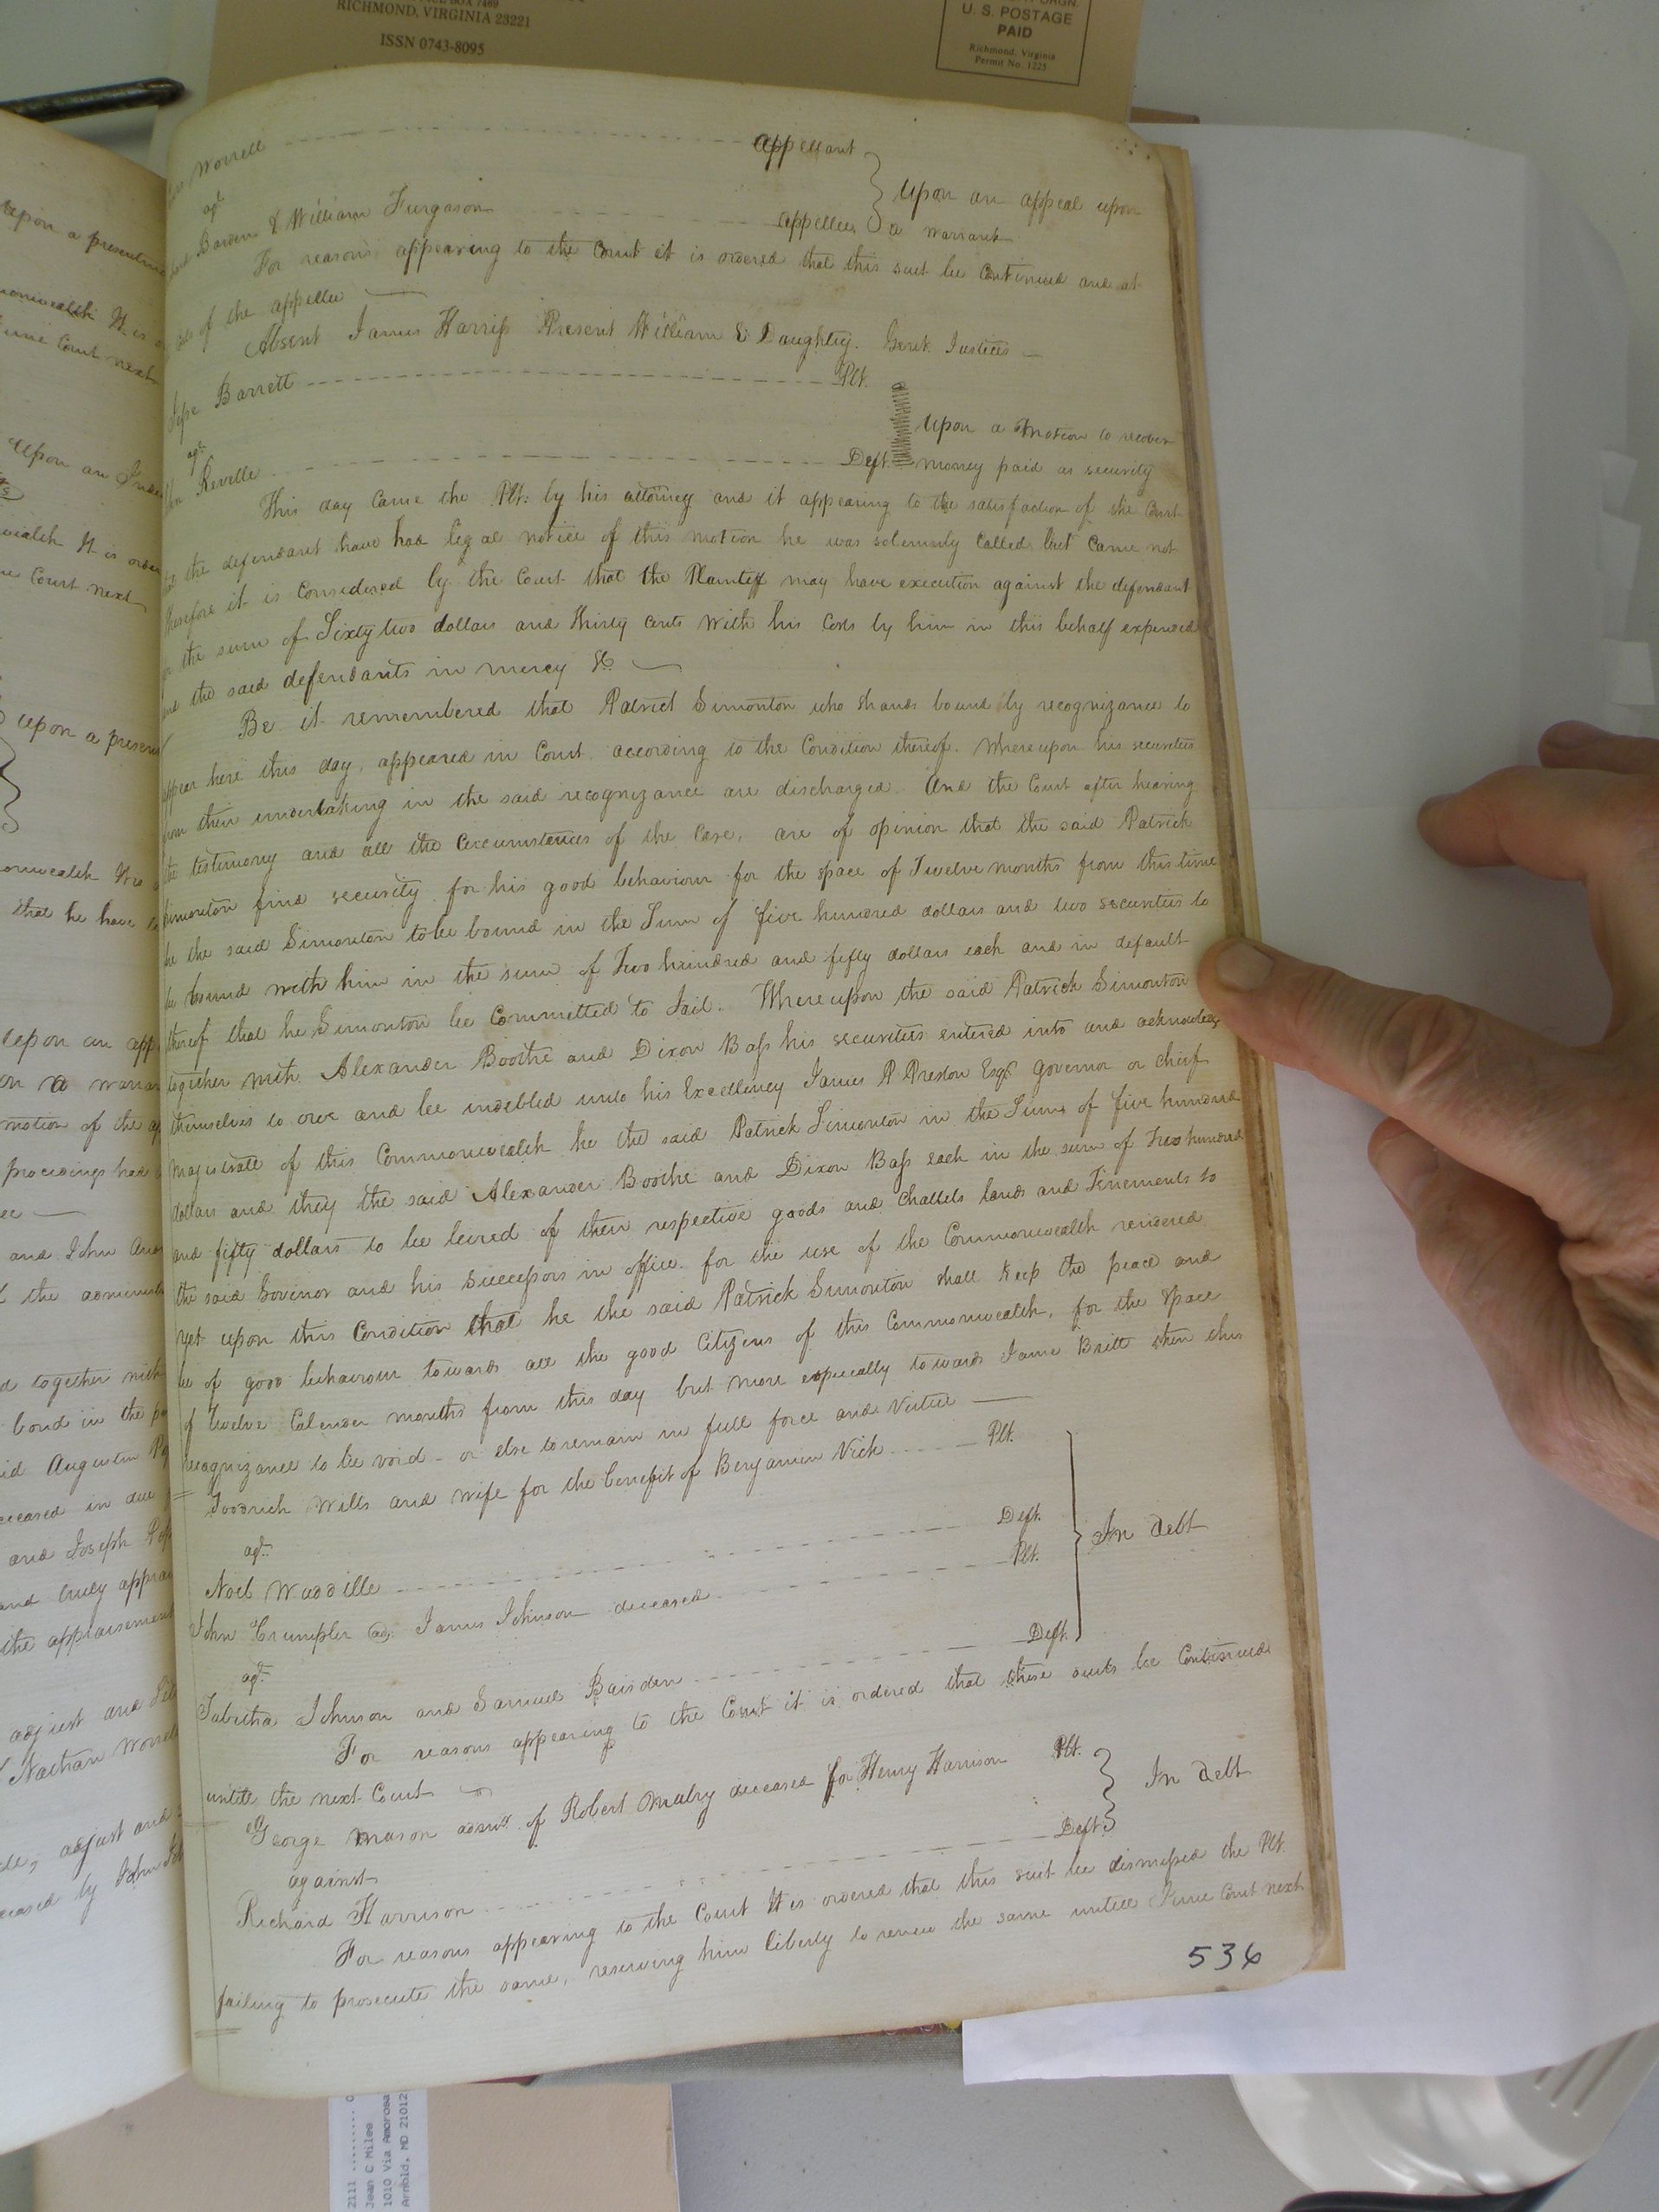 RICHMOND, VIRGINIA 23221
ISSN 0743-8095
U. S. POSTAGE
PAID
Richmond, Virginia
Permit No. 1225
upon a presentm
monwealth It is
June Court next
upon an Inde
wealth It is order
Court next
upon a presen
onwealth It is
that he have
upon an app
on a warran
motion of the ap
proceedings had
and John And
the administ
d together with
bond in the
id Augustin
eceased in due
and Joseph
and truly apprai
the appraisement
adjust and
Nathan Worrell
adjust and
eased by John
Worrell appellant
agt.
Barden & William Furgason appellees
upon an appeal upon
a warrant
For reasons appearing to the Court it is ordered that this suit be continued and at
of the appellee
Absent James Harriss Present William E Daughtry. Gent. Justices
Jesse Barrett Plt.
agt.
Reville Deft.
upon a motion to recover
money paid as security
This day came the Plt: by his attorney and it appearing to the satisfaction of the Court
the defendant have had legal notice of this motion he was solemnly called but came not
therefore it is considered by the Court that the Plaintiff may have execution against the defendant
for the sum of Sixty two dollars and thirty cents with his Costs by him in this behalf expended
and the said defendants in mercy &c
Be it remembered that Patrick Simonton who stands bound by recognizance to
appear here this day, appeared in Court according to the Condition thereof. Whereupon his securities
from their undertaking in the said recognizance are discharged. And the Court after hearing
the testimony and all the circumstances of the case, are of opinion that the said Patrick
Simonton find security for his good behaviour for the space of Twelve months from this time
he the said Simonton to be bound in the Sum of five hundred dollars and two securities to
be bound with him in the sum of Two hundred and fifty dollars each and in default
thereof that he Simonton be Committed to Jail. Whereupon the said Patrick Simonton
together with Alexander Boothe and Dixon Bass his securities entered into and acknowledg
themselves to owe and be indebted unto his Excellency James P Preston Esqr. Governor or chief
magistrate of this Commonwealth he the said Patrick Simonton in the Sum of five hundred
dollars and they the said Alexander Boothe and Dixon Bass each in the sum of Two hundred
and fifty dollars to be levied of their respective goods and chattels lands and Tenements to
the said Govenor and his Successors in office for the use of the Commonwealth rendered
yet upon this Condition that he the said Patrick Simonton shall keep the peace and
be of good behaviour towards all the good Citizens of this Commonwealth, for the space
of twelve Calender months from this day but more especially towards Jame Britt then this
recognizance to be void - or else to remain in full force and Virtue
Goodrich Wills and wife for the benefit of Benjamin Vick Plt.
agt.
Noel Waddille Deft.
John Crumpler adr. James Johnson deceased Plt.
In debt
agt.
Tabitha Johnson and Samuel Baisden Deft.
For reasons appearing to the Court it is ordered that these suits be Continued
untill the next Court
George Mason admr. of Robert Mabry deceased for Henry Harrison Plt.
against
In debt
Richard Harrison Deft.
For reasons appearing to the Court It is ordered that this suit be dismissed the Plt.
failing to prosecute the same, reserving him liberty to renew the same untill June Court next
536
2111
Jean C Miles
1010 Via Amorosa
Arnold, MD 21012